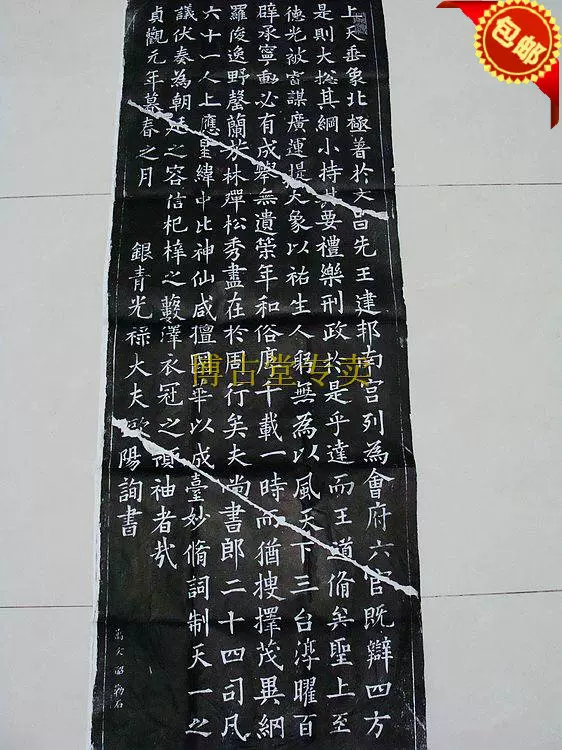 上天垂象北極著於文昌先王建邦南宫列為會府六官既辯四方
是則大揔其綱小持其要禮樂刑政於是乎達而王道脩矣聖上至
德光被富謀廣運提大象以祐生人躬無為以風天下三台淳曜百
辟承寧動必有成舉無遺策年和俗康千載一時而猶搜擇茂異網
羅俊逸野罄蘭芳林殫松秀盡在於周行矣夫尚書郎二十四司凡
六十一人上應星緯中比神仙咸擅國華以成臺妙脩詞制天一之
議伏奏為朝廷之容信杞梓之藪澤衣冠之領袖者哉
貞觀元年暮春之月
銀青光祿大夫歐陽詢書
勒石
博古堂专卖
包邮